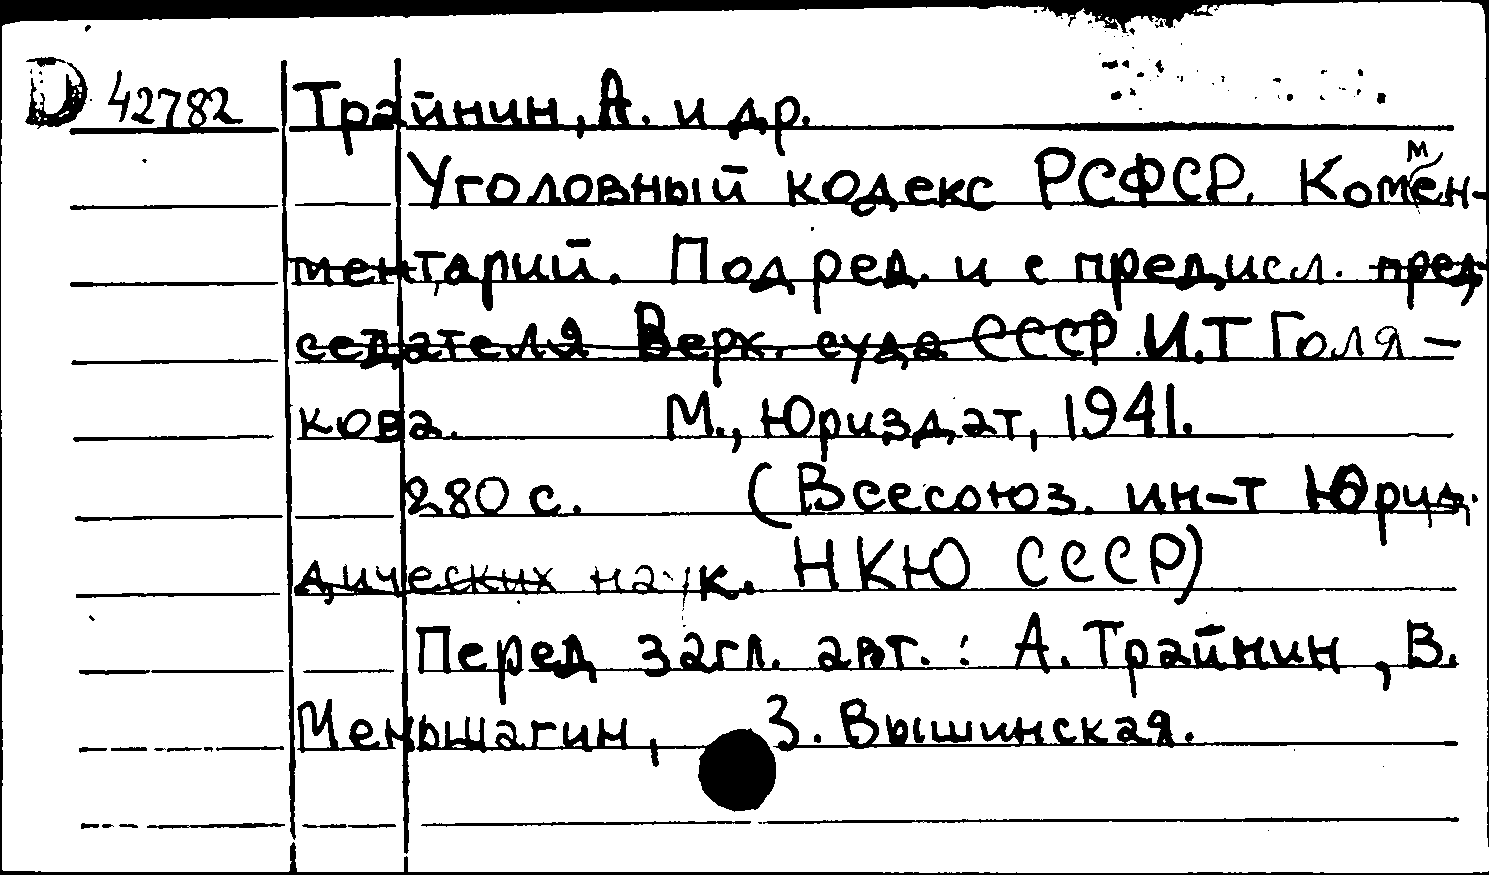 D 42782 Трайнин, А. и др.
Уголовный кодекс РСФСР. Коммен-
ментарий. Под ред. и с предисл. пред-
седателя Верх. суда СССР И.Т Голя-
кова. М., Юриздат, 1941.
280 с. (Всесоюз. ин-т Юрид.
дических наук. НКЮ СССР)
Перед загл. авт.: А. Трайнин, В.
Меньшагин, З. Вышинская.